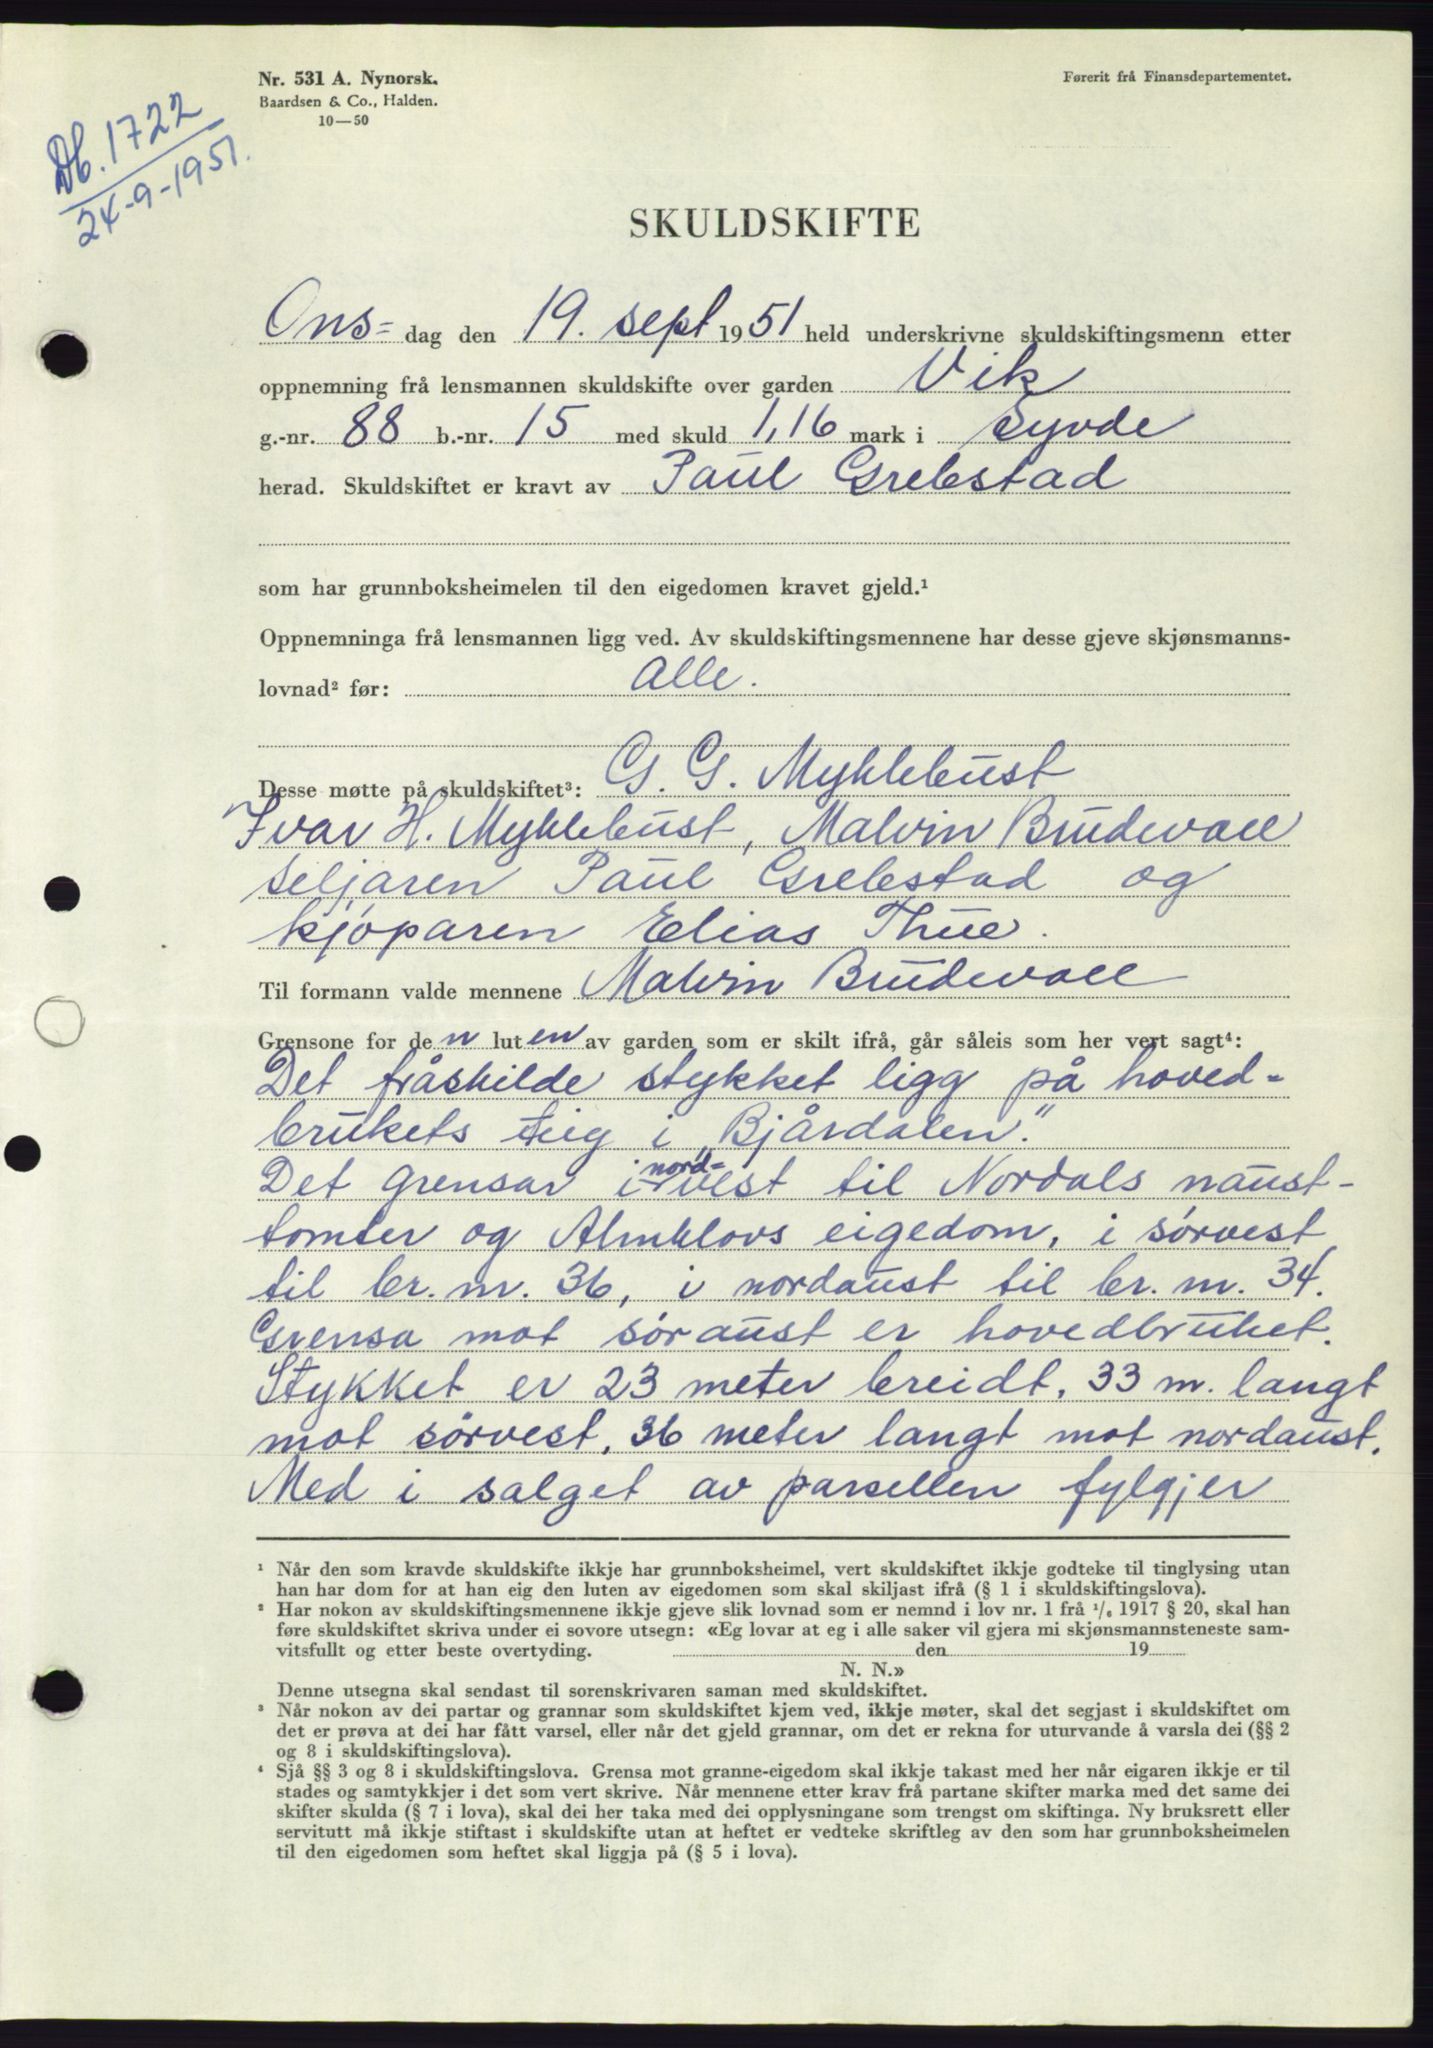 Nr. 531 A. Nynorsk.
Baardsen & Co., Halden.
10—50
Førerit frå Finansdepartementet.
Db. 1722
24-9-1951.
SKULDSKIFTE
Ons= dag den 19. sept 1951 held underskrivne skuldskiftingsmenn etter
oppnemning frå lensmannen skuldskifte over garden Vik
g.-nr. 88 b.-nr. 15 med skuld 1,16 mark i Syvde
herad. Skuldskiftet er kravt av Paul Grebstad
som har grunnboksheimelen til den eigedomen kravet gjeld.¹
Oppnemninga frå lensmannen ligg ved. Av skuldskiftingsmennene har desse gjeve skjønsmanns-
lovnad² før: Alle.
Desse møtte på skuldskiftet³: G. G. Myklebust
Ivar H. Myklebust, Malvin Brudevoll
seljaren Paul Grebstad og
kjøparen Elias Thue.
Til formann valde mennene Malvin Brudevoll
Grensone for den luten av garden som er skilt ifrå, går såleis som her vert sagt⁴:
Det fråskilde stykket ligg på hoved=
brukets teig i „Bjårdalen".
Det grensar i nord=vest til Nordals naust-
tomter og Almklovs eigedom, i sørvest
til br. nr. 36, i nordaust til br. nr. 34.
Grensa mot søraust er hovedbruket.
Stykket er 23 meter breidt, 33 m. langt
mot sörvest, 36 meter langt mot nordaust.
Med i salget av parsellen fylgjer
¹ Når den som kravde skuldskifte ikkje har grunnboksheimel, vert skuldskiftet ikkje godteke til tinglysing utan
han har dom for at han eig den luten av eigedomen som skal skiljast ifrå (§ 1 i skuldskiftingslova).
² Har nokon av skuldskiftingsmennene ikkje gjeve slik lovnad som er nemnd i lov nr. 1 frå ¹/₆ 1917 § 20, skal han
føre skuldskiftet skriva under ei sovore utsegn: «Eg lovar at eg i alle saker vil gjera mi skjønsmannsteneste sam-
vitsfullt og etter beste overtyding. den 19
N. N.»
Denne utsegna skal sendast til sorenskrivaren saman med skuldskiftet.
³ Når nokon av dei partar og grannar som skuldskiftet kjem ved, ikkje møter, skal det segjast i skuldskiftet om
det er prøva at dei har fått varsel, eller når det gjeld grannar, om det er rekna for uturvande å varsla dei (§§ 2
og 8 i skuldskiftingslova).
⁴ Sjå §§ 3 og 8 i skuldskiftingslova. Grensa mot granne-eigedom skal ikkje takast med her når eigaren ikkje er til
stades og samtykkjer i det som vert skrive. Når mennene etter krav frå partane skifter marka med det same dei
skifter skulda (§ 7 i lova), skal dei her taka med dei opplysningane som trengst om skiftinga. Ny bruksrett eller
servitutt må ikkje stiftast i skuldskifte utan at heftet er vedteke skriftleg av den som har grunnboksheimelen
til den eigedomen som heftet skal liggja på (§ 5 i lova).